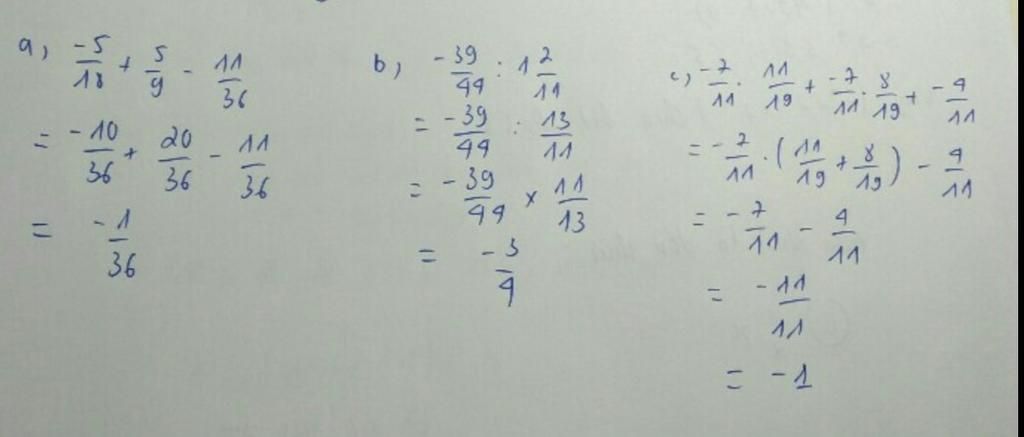 a, -5/18 + 5/9 - 11/36
= -10/36 + 20/36 - 11/36
= -1/36
b, -39/44 : 1 2/11
= -39/44 : 13/11
= -39/44 × 11/13
= -3/4
c, -7/11 . 11/19 + -7/11 . 8/19 + -4/11
= -7/11 . (11/19 + 8/19) - 4/11
= -7/11 - 4/11
= -11/11
= -1